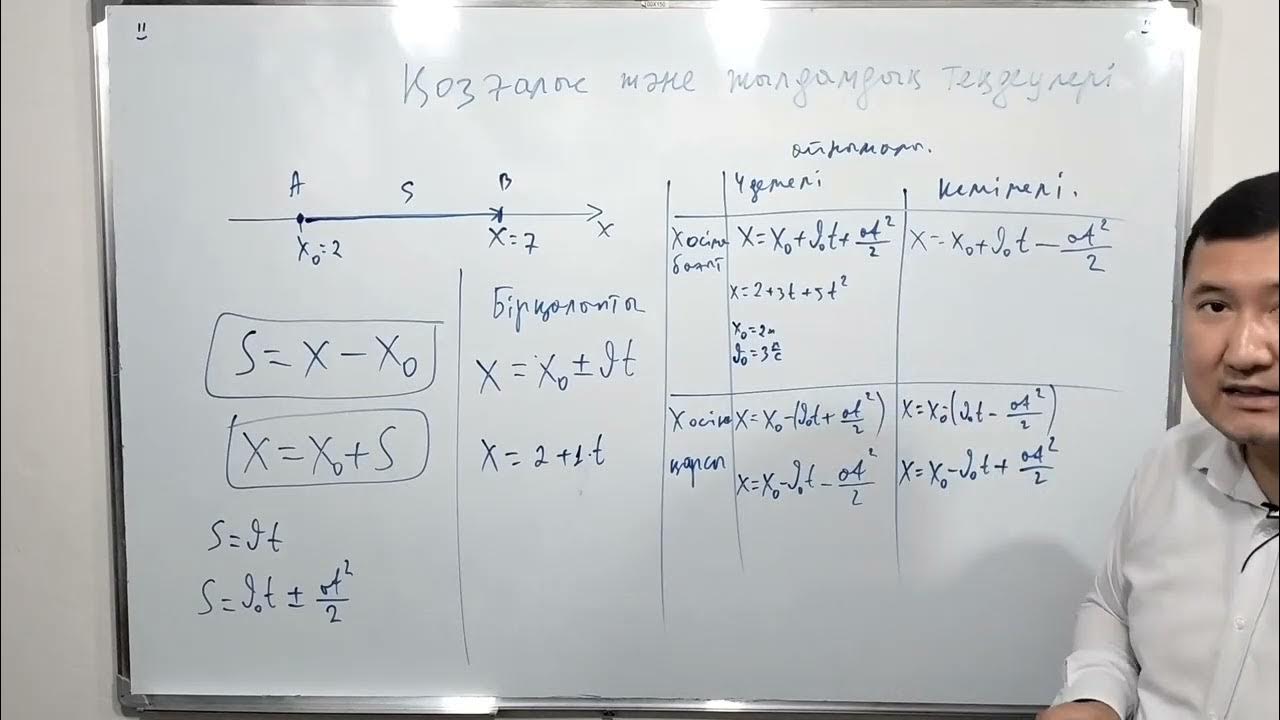 Қозғалыс және жылдамдық теңдеулері
A S B
X₀=2 X=7 X
S=X−X₀
X=X₀+S
S=ϑt
S=ϑ₀t ± at²/2
Бірқалыпты
X=X₀±ϑt
X=2+1·t
айнымалы.
Үдемелі Кемімелі.
X осіне бағыт X=X₀+ϑ₀t+at²/2 X=X₀+ϑ₀t−at²/2
x=2+3t+5t²
X₀=2м
ϑ₀=3м/с
X осіне қарсы X=X₀−(ϑ₀t+at²/2) X=X₀−(ϑ₀t−at²/2)
X=X₀−ϑ₀t−at²/2 X=X₀−ϑ₀t+at²/2